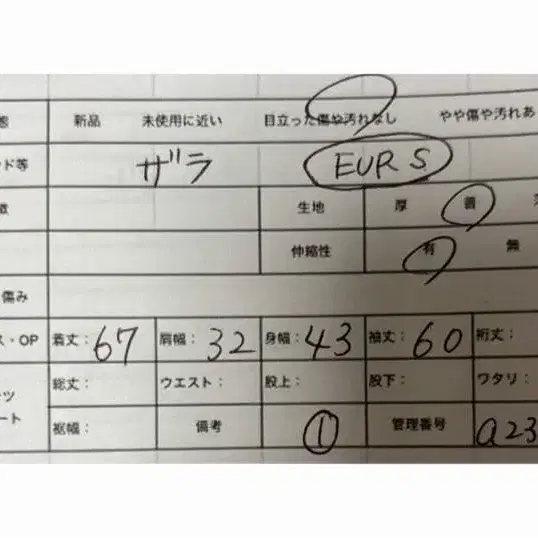 態 新品 未使用に近い 目立った傷や汚れなし やや傷や汚れあ
ド等 ザラ EUR S
徴 生地 厚 普
伸縮性 有 無
傷み
ス・OP 着丈：67 肩幅：32 身幅：43 袖丈：60 裄丈：
ツ 総丈： ウエスト： 股上： 股下： ワタリ：
ート 裾幅： 備考 ① 管理番号 a23